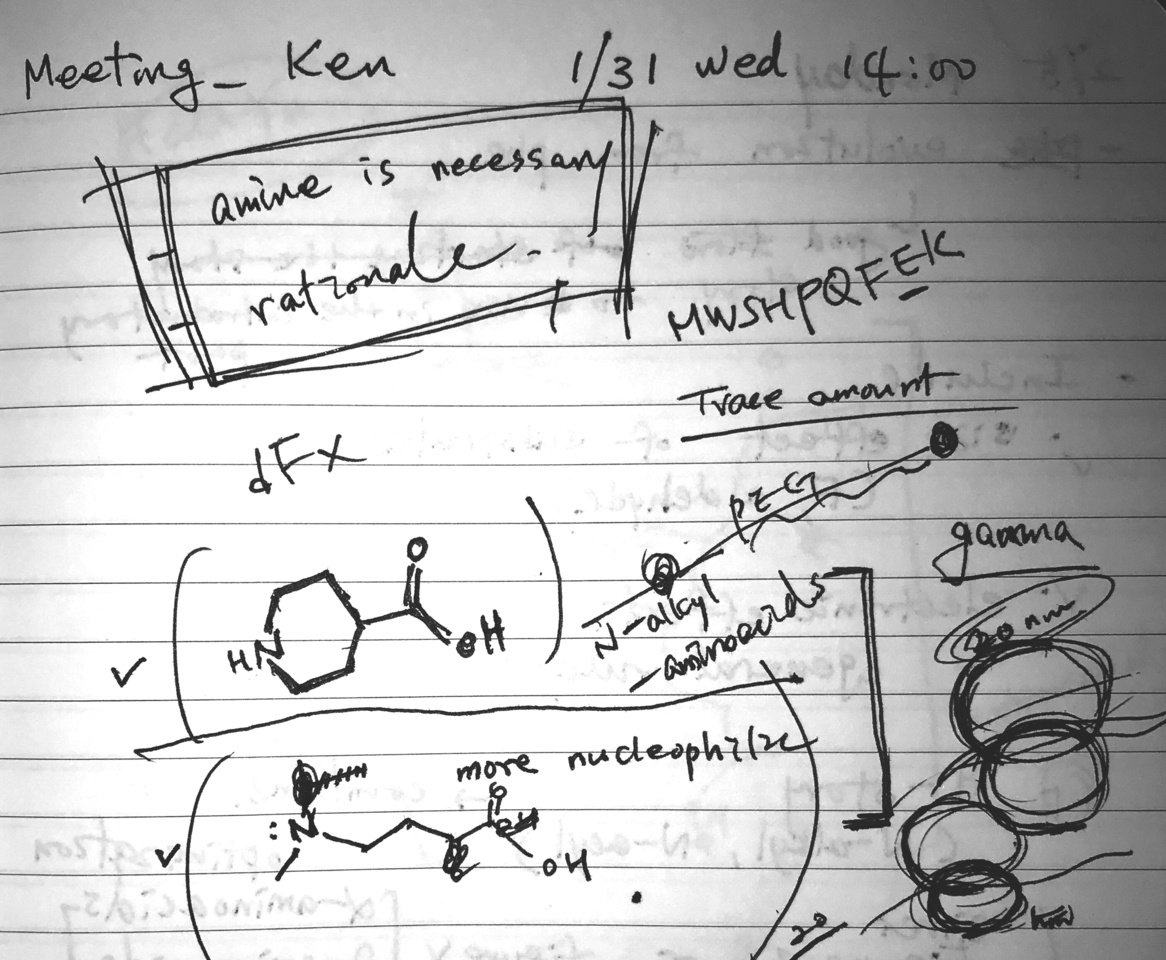 Meeting_ Ken 1/31 Wed 14:00
amine is necessary
rationale.
MWSHPQFEK
Trace amount
dFx
PEG
gamma
O
OH
HN
N-alkyl
aminoacids
20 nm
more nucleophilic
:N
O
OH
20